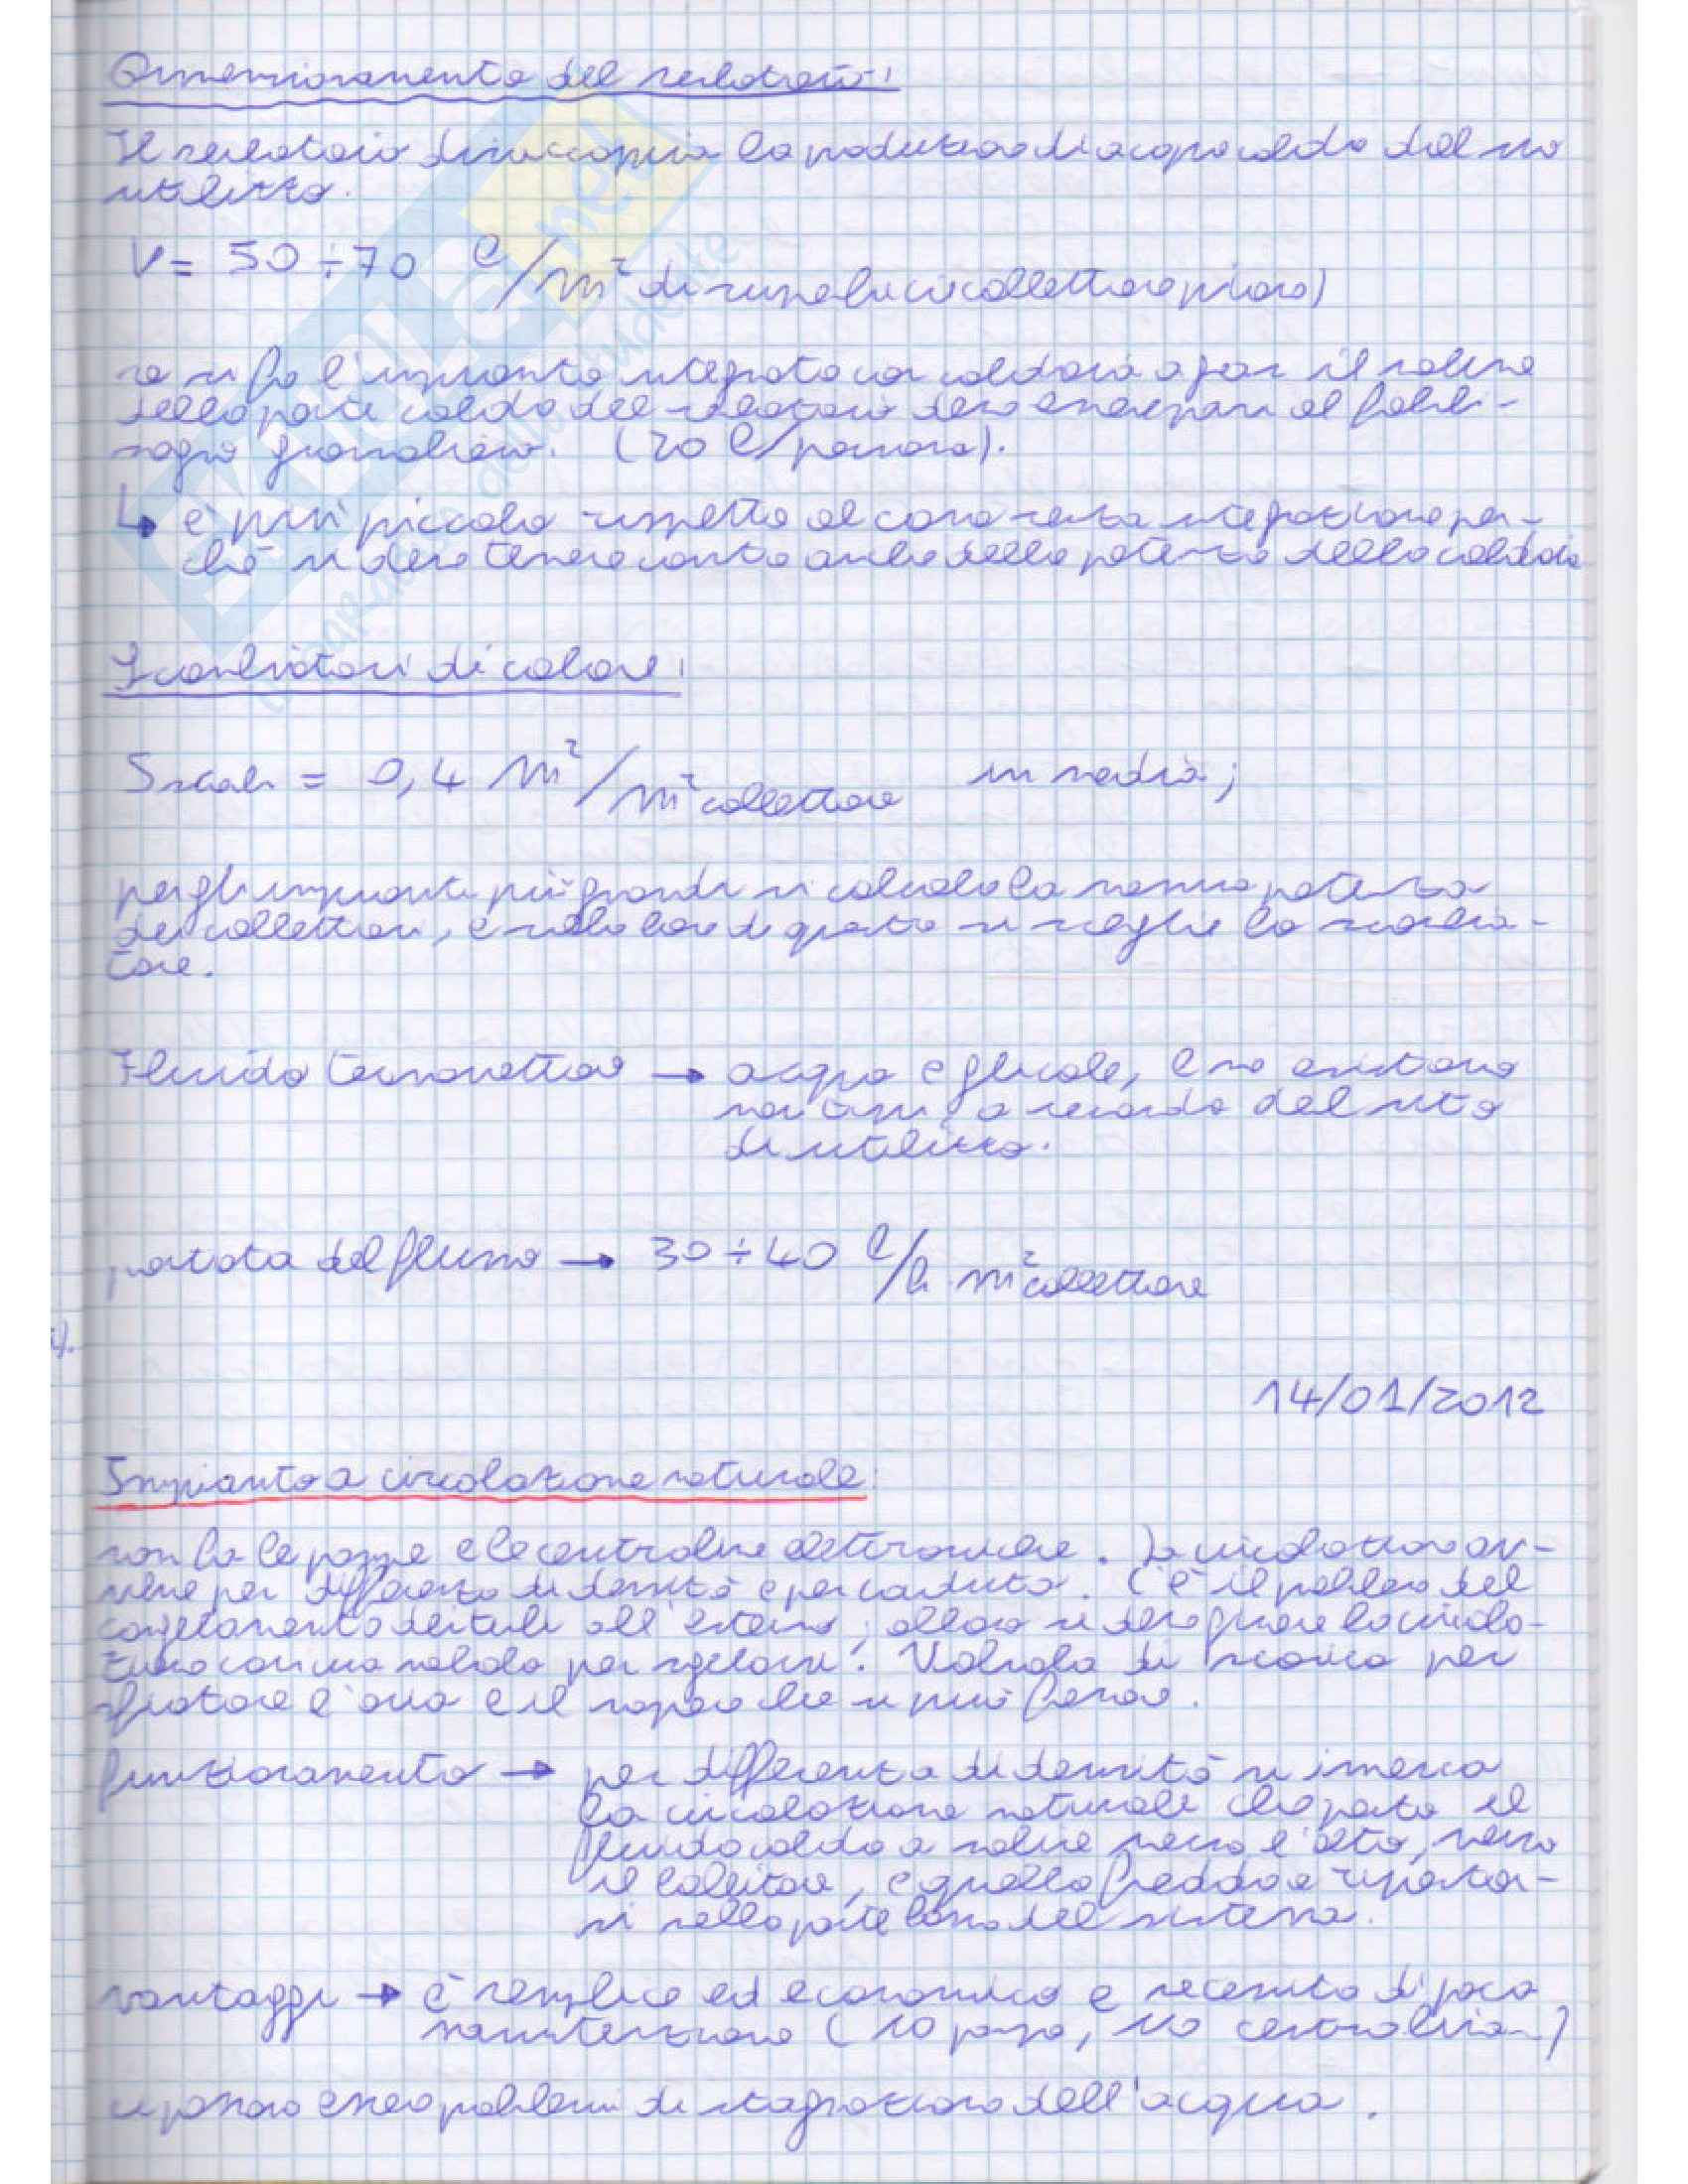 Dimensionamento del serbatoio:
Il serbatoio disaccoppia la produzione di acqua calda dal suo
utilizzo.
V = 50 ÷ 70 l/m² di superficie collettore piano)
se si fa l'impianto integrato con caldaia a gas il volume
della parte calda del serbatoio deve essere pari al fabbi-
sogno giornaliero. (70 l/persona).
↳ è più piccolo rispetto al caso senza integrazione per-
chè si deve tenere conto anche della potenza della caldaia
Scambiatori di calore:
Sscamb = 0,4 m²/m² collettore in media;
per gli impianti più grandi si calcola la massima potenza
dei collettori, e sulla base di questa si sceglie lo scambia-
tore.
Fluido termovettore → acqua e glicole, e ne esistono
vari tipi a seconda del sito
di utilizzo.
portata del flusso → 30 ÷ 40 l/h m² collettore
).
14/01/2012
Impianto a circolazione naturale:
non ha le pompe e le centraline elettroniche. La circolazione av-
viene per differenza di densità e per condotta. C'è il problema del
congelamento dei tubi all'esterno; allora si deve
con una valvola per Valvola di scarico per
sfiatare l'aria e il vapore che si può formare.
funzionamento → per differenza di densità si innesca
la circolazione naturale che porta il
fluido caldo a salire verso l'alto, verso
il bollitore, e quello freddo a riportar-
si nella parte bassa del sistema.
vantaggi → è semplice ed economico e necessita di poca
manutenzione (no pompa, no centralina..)
ci possono essere problemi di stagnazione dell'acqua.